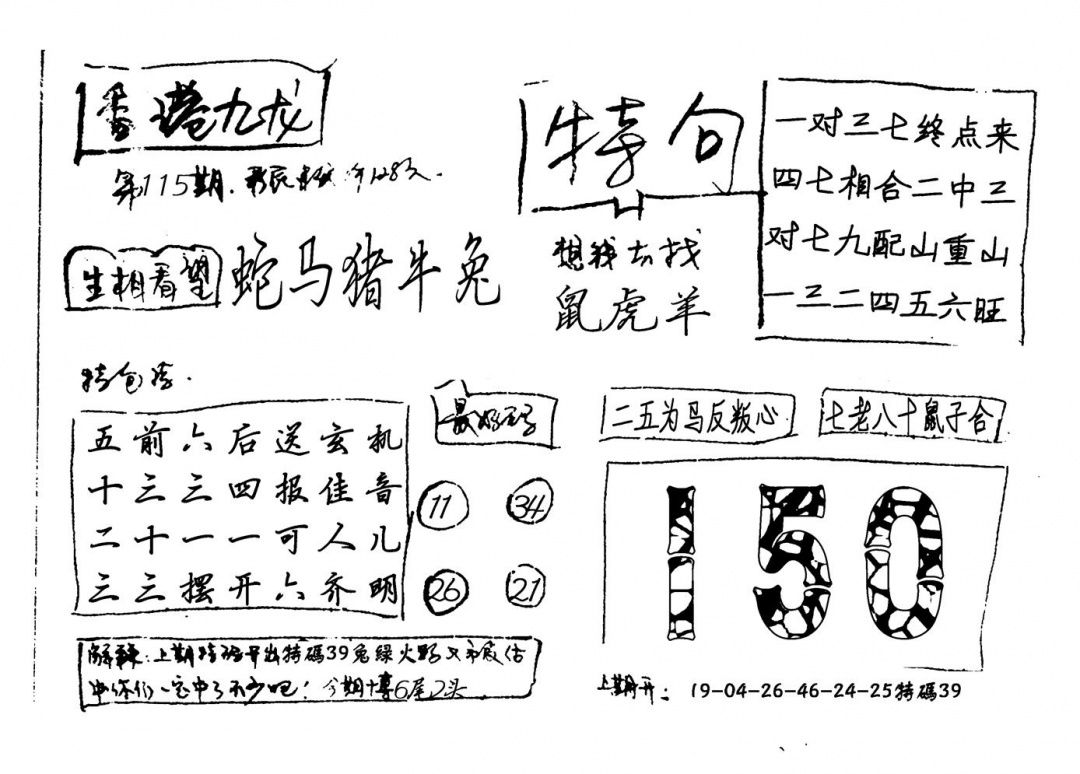 香港九龙
第115期.
生相看望
蛇马猪牛兔
特句
想我去找
鼠虎羊
一对三七终点来
四七相合二中三
对七九配山重山
一三二四五六旺
特包
五前六后送玄机
十三三四报佳音
二十一一可人儿
三三摆开六齐明
最好
11
34
26
21
二五为鸟反叛心
七老八十鼠子合
150
上期特码开出特碼39兔綠火
你们一定中了不少吧！今期博6尾2头
上期开：19-04-26-46-24-25特碼39